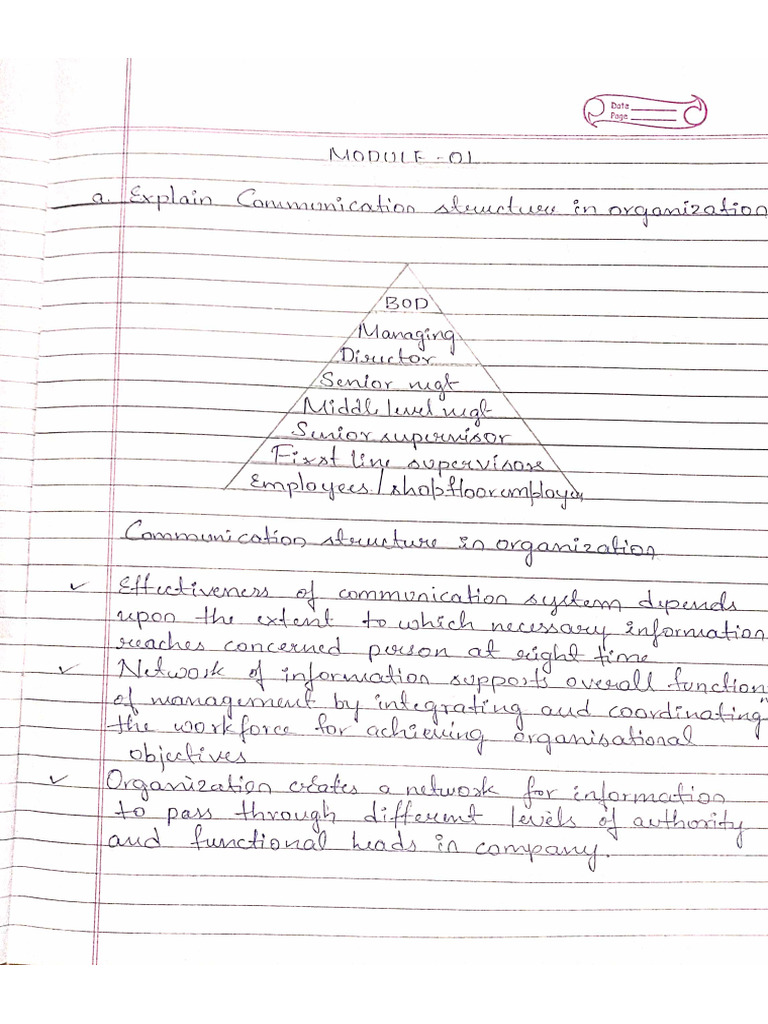 Date
Page
MODULE-01
a. Explain Communication structure in organization
BOD
Managing
Director
Senior mgt
Middle level mgt
Senior supervisor
First line supervisors
Employees/shopfloor employees
Communication structure in organization
✓ Effectiveness of communication system depends
upon the extent to which necessary information
reaches concerned person at right time
✓ Network of information supports overall function
of management by integrating and coordinating
the workforce for achieving organisational
objectives
✓ Organization creates a network for information
to pass through different levels of authority
and functional heads in company.